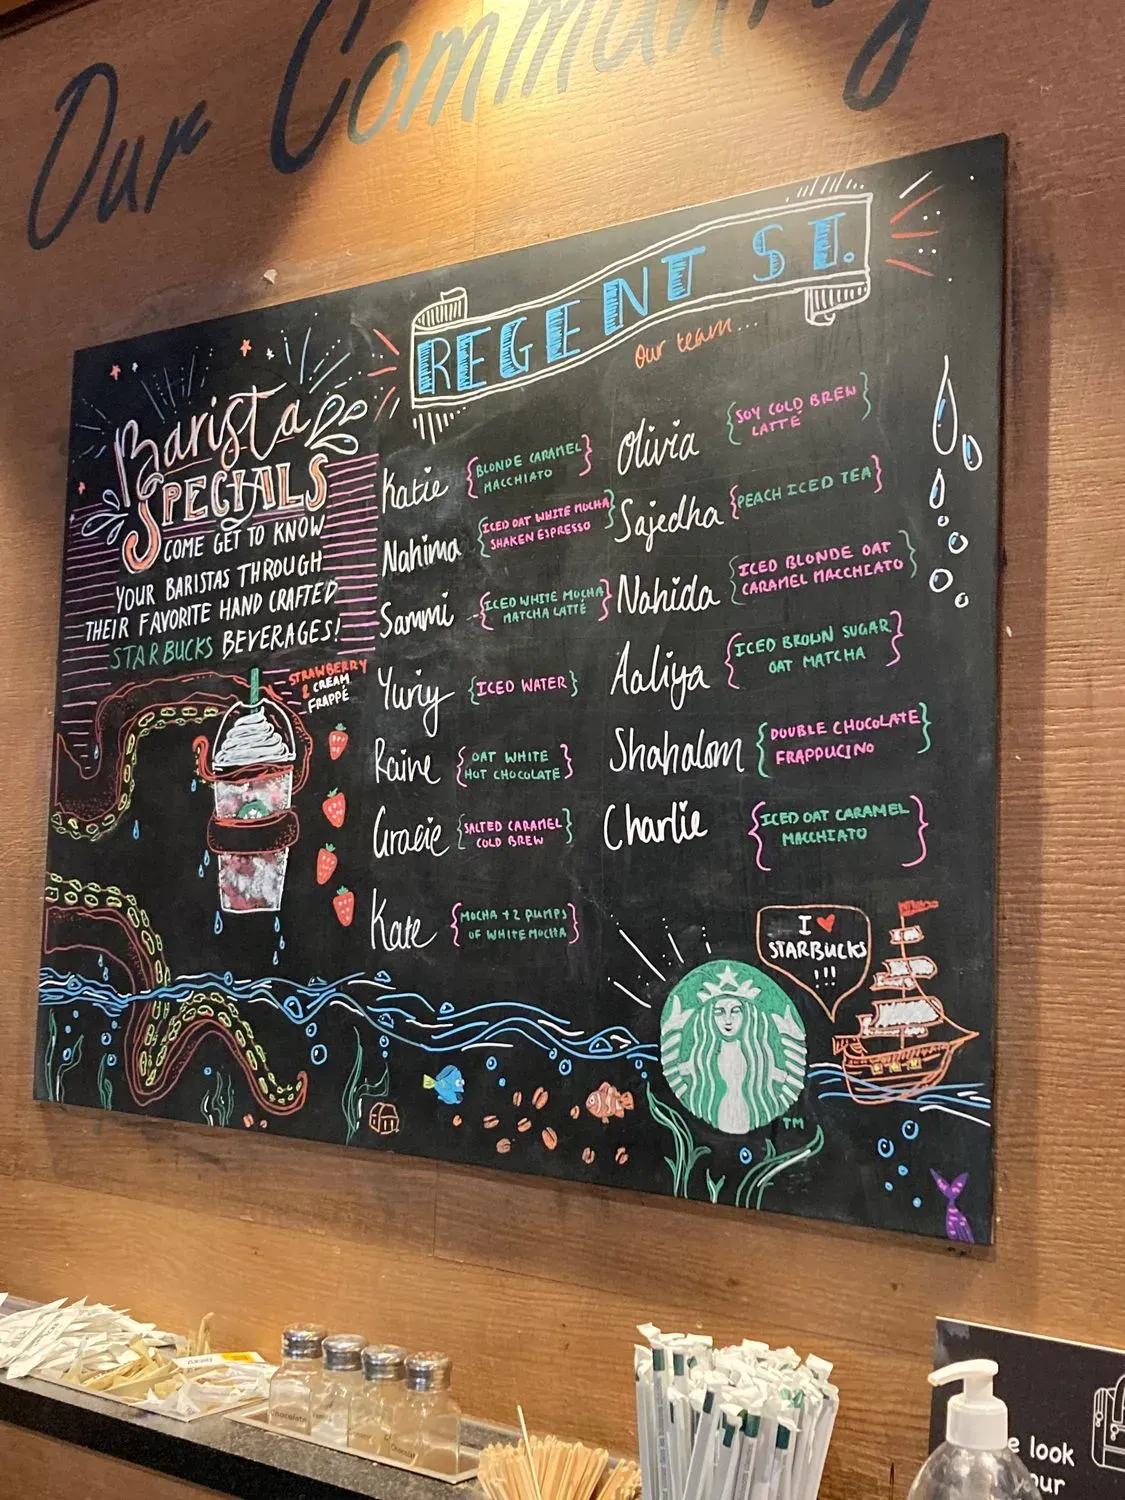 Our Community
REGENT ST.
Our team...
Barista
SPECIALS
COME GET TO KNOW
YOUR BARISTAS THROUGH
THEIR FAVORITE HAND CRAFTED
STARBUCKS BEVERAGES!
STRAWBERRY
& CREAM
FRAPPÉ
Katie {BLONDE CARAMEL
MACCHIATO}
Nahima {ICED OAT WHITE MOCHA
SHAKEN ESPRESSO}
Sammi {ICED WHITE MOCHA
MATCHA LATTE}
Yuriy {ICED WATER}
Raine {OAT WHITE
HOT CHOCOLATE}
Gracie {SALTED CARAMEL
COLD BREW}
Kate {MOCHA + 2 PUMPS
OF WHITE MOCHA}
Olivia {SOY COLD BREW
LATTÉ}
Sajedha {PEACH ICED TEA}
Nahida {ICED BLONDE OAT
CARAMEL MACCHIATO}
Aaliya {ICED BROWN SUGAR
OAT MATCHA}
Shahalom {DOUBLE CHOCOLATE
FRAPPUCINO}
Charlie {ICED OAT CARAMEL
MACCHIATO}
I ♥
STARBUCKS
!!!
TM
Chocolate
look
your